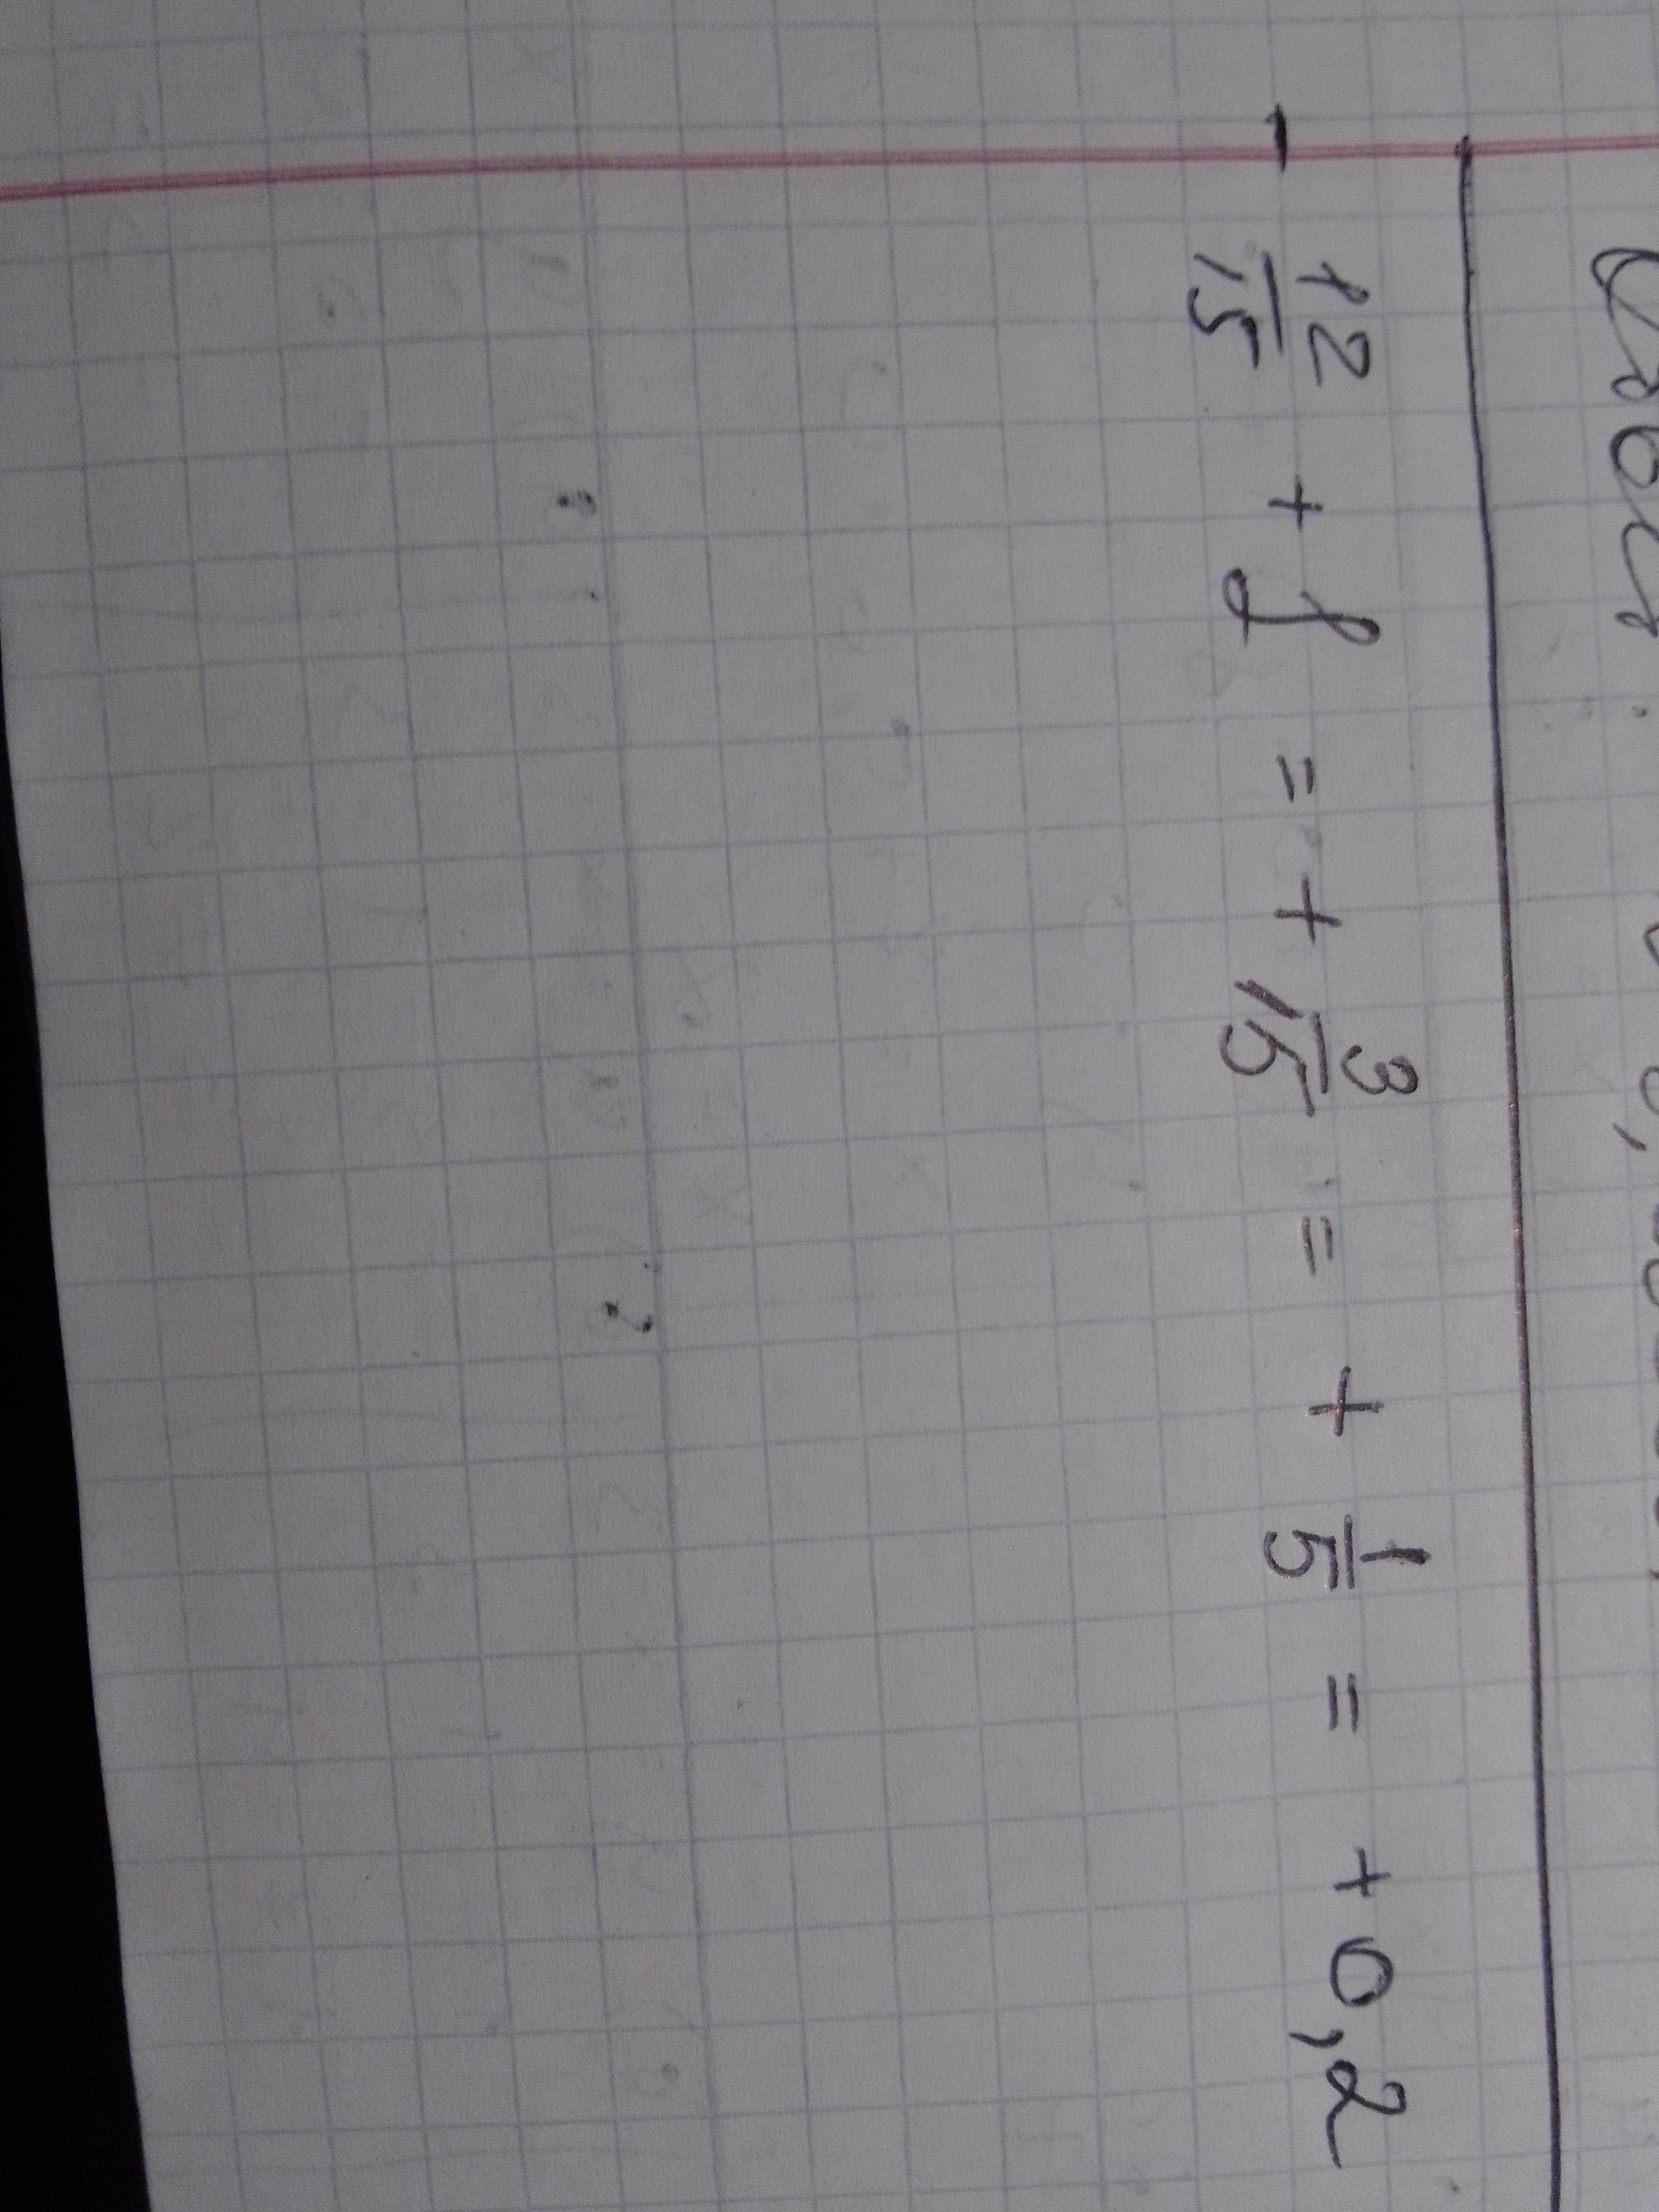 - 12/15 + 1 = + 3/15 = + 1/5 = + 0,2